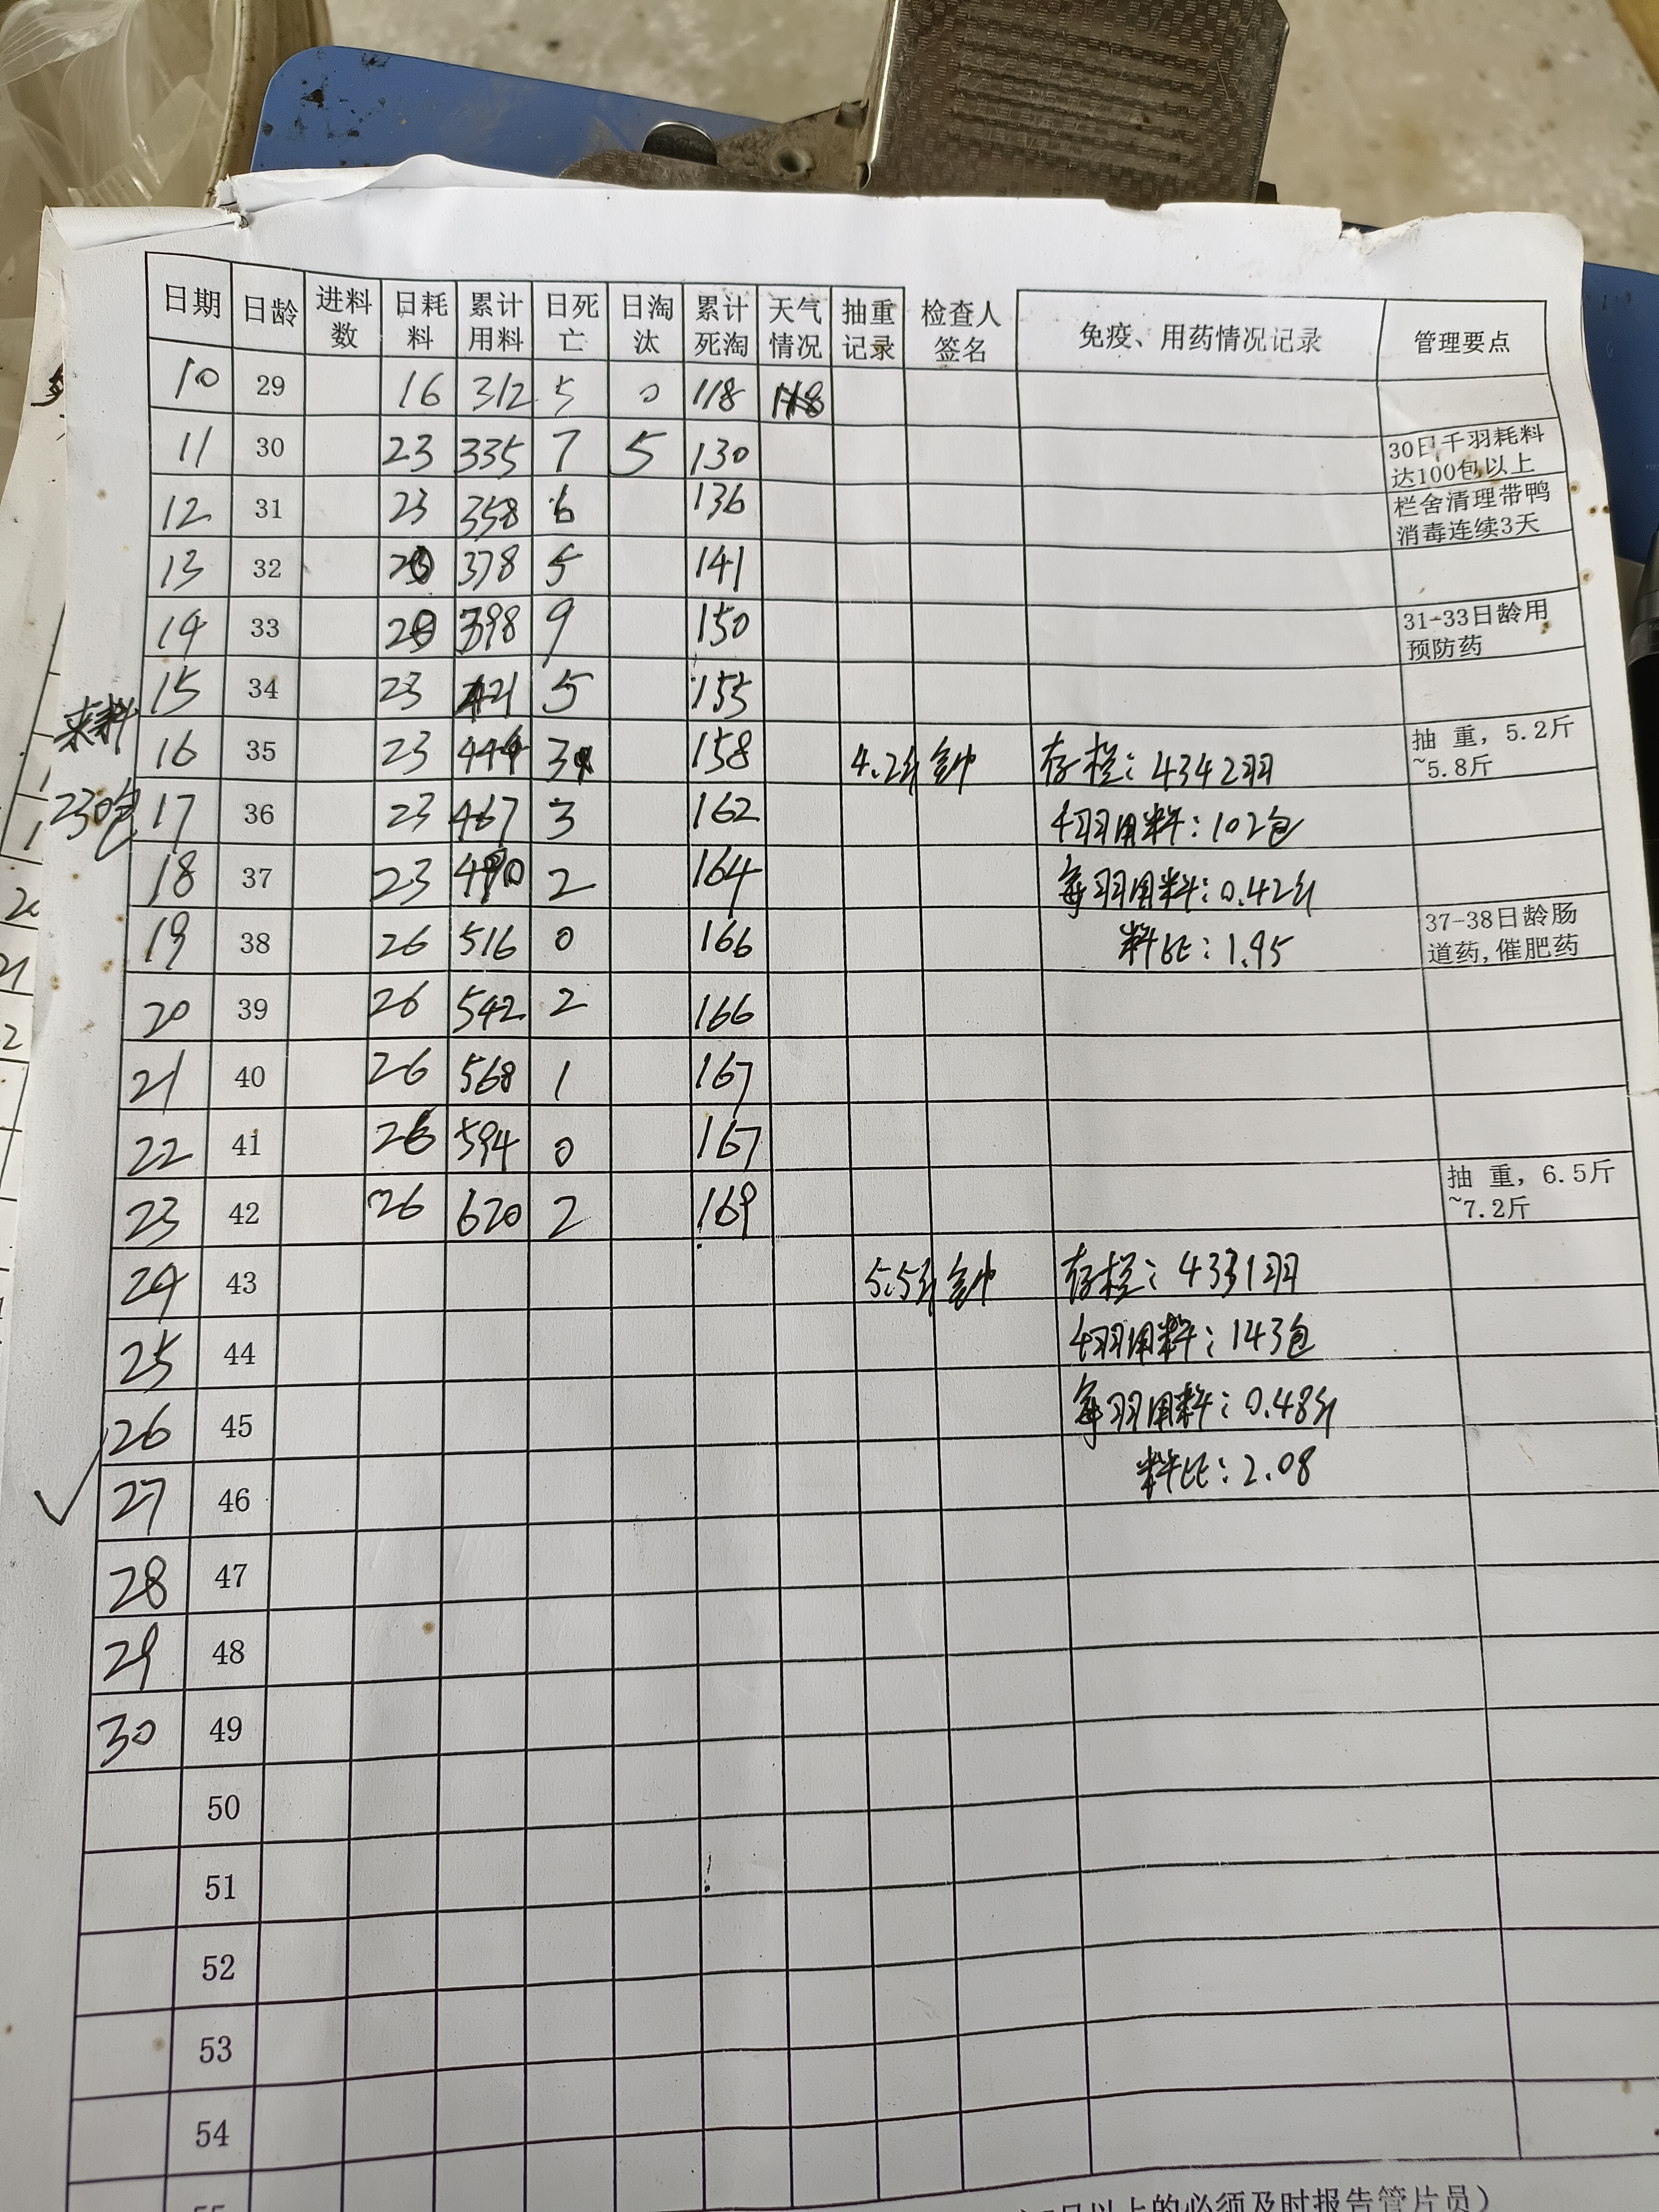 日期 日龄 进料数 日耗料 累计用料 日死亡 日淘汰 累计死淘 天气情况 抽重记录 检查人签名 免疫、用药情况记录 管理要点
10 29 16 312 5 0 118
11 30 23 335 7 5 130 30日千羽耗料达100包以上
12 31 23 358 6 136 栏舍清理带鸭消毒连续3天
13 32 20 378 5 141
14 33 20 398 9 150 31-33日龄用预防药
15 34 23 421 5 155
来料
16 35 23 444 3 158 4.2斤 存栏:4342羽 抽 重, 5.2斤~5.8斤
230包
17 36 23 467 3 162 千羽用料:102包
18 37 23 490 2 164 每羽用料:0.42斤
19 38 26 516 0 166 料比:1.95 37-38日龄肠道药,催肥药
20 39 26 542 2 166
21 40 26 568 1 167
22 41 26 594 0 167
23 42 26 620 2 169 抽 重, 6.5斤~7.2斤
24 43 5.5斤 存栏:4331羽
25 44 千羽用料:143包
26 45 每羽用料:0.48斤
27 46 料比:2.08
28 47
29 48
30 49
50
51
52
53
54
55
以上的必须及时报告管片员)